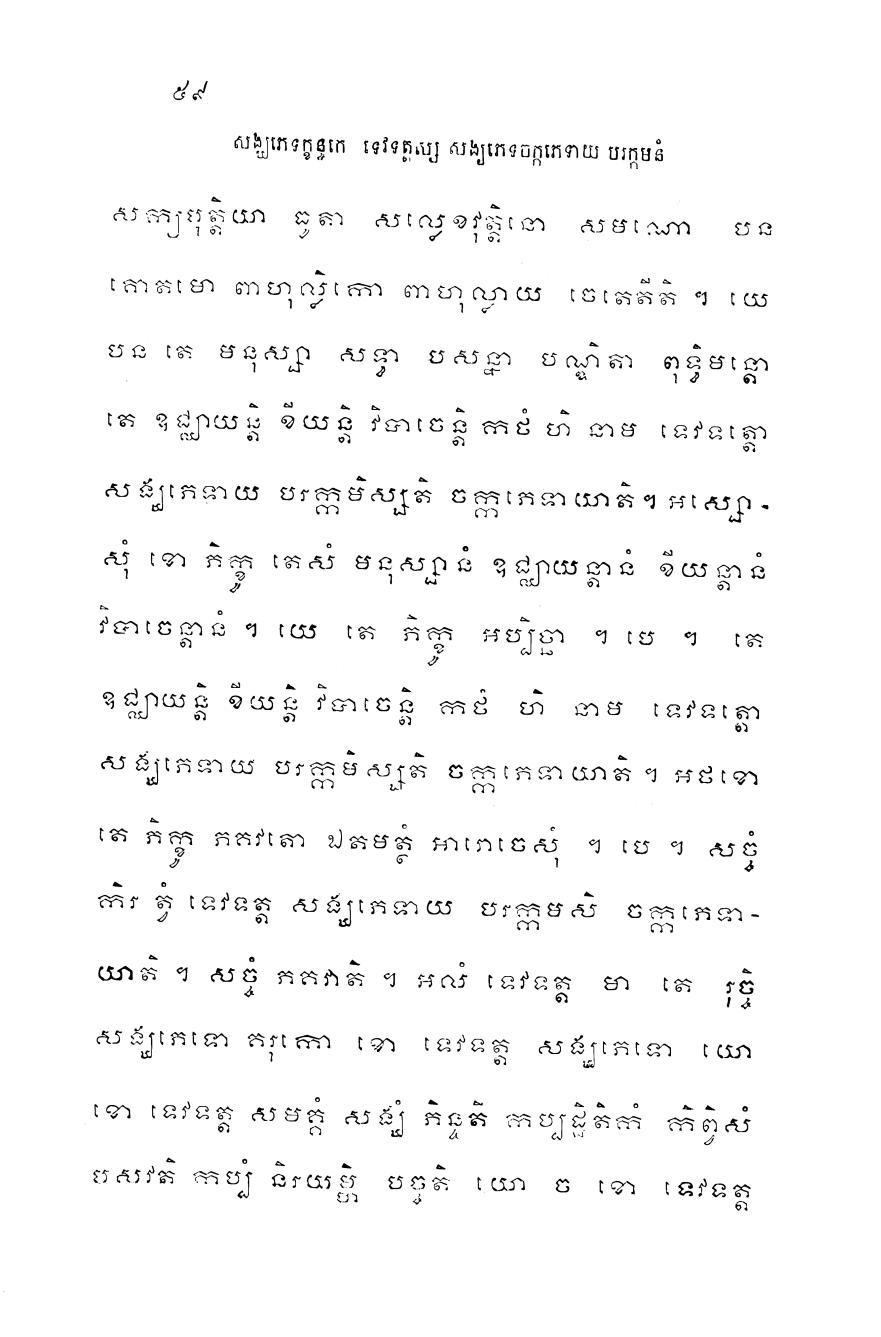 ៥៩
សង្ឃភេទក្ខន្ធកេ ទេវទត្តស្ស សង្ឃភេទចក្កភេទាយ បរក្កមនំ
សក្យបុត្តិយា ធូតា សល្លេខវុត្តិនោ សមណោ បន
គោតមោ ពាហុល្លិកោ ពាហុល្លាយ ចេតេតីតិ ។ យេ
បន តេ មនុស្សា សទ្ធា បសន្នា បណ្ឌិតា ពុទ្ធិមន្តោ
តេ ឧជ្ឈាយន្តិ ខីយន្តិ វិបាចេន្តិ កថំ ហិ នាម ទេវទត្តោ
សង្ឃភេទាយ បរក្កមិស្សតិ ចក្កភេទាយាតិ។ អស្សោ-
សុំ ខោ ភិក្ខូ តេសំ មនុស្សានំ ឧជ្ឈាយន្តានំ ខីយន្តានំ
វិបាចេន្តានំ ។ យេ តេ ភិក្ខូ អប្បិច្ឆា ។ បេ ។ តេ
ឧជ្ឈាយន្តិ ខីយន្តិ វិបាចេន្តិ កថំ ហិ នាម ទេវទត្តោ
សង្ឃភេទាយ បរក្កមិស្សតិ ចក្កភេទាយាតិ ។ អថខោ
តេ ភិក្ខូ ភគវតោ ឯតមត្ថំ អារោចេសុំ ។ បេ ។ សច្ចំ
កិរ ត្វំ ទេវទត្ត សង្ឃភេទាយ បរក្កមសិ ចក្កភេទា-
យាតិ ។ សច្ចំ ភគវាតិ ។ អលំ ទេវទត្ត មា តេ រុច្ចិ
សង្ឃភេទោ គរុកោ ខោ ទេវទត្ត សង្ឃភេទោ យោ
ខោ ទេវទត្ត សមគ្គំ សង្ឃំ ភិន្ទតិ កប្បដ្ឋិតិកំ កិព្វិសំ
បសវតិ កប្បំ និរយម្ហិ បច្ចតិ យោ ច ខោ ទេវទត្ត